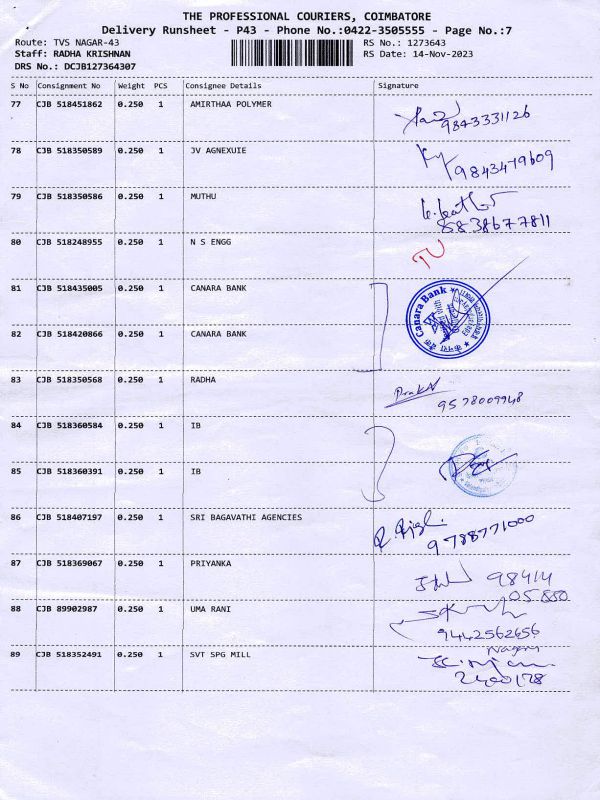 THE PROFESSIONAL COURIERS, COIMBATORE
Delivery Runsheet - P43 - Phone No.:0422-3505555 - Page No.:7
Route: TVS NAGAR-43 RS No.: 1273643
Staff: RADHA KRISHNAN RS Date: 14-Nov-2023
DRS No.: DCJB127364307
S No Consignment No Weight PCS Consignee Details Signature
77 CJB 518451862 0.250 1 AMIRTHAA POLYMER
9843331126
78 CJB 518350589 0.250 1 JV AGNEXUIE
9843479609
79 CJB 518350586 0.250 1 MUTHU
8838677811
80 CJB 518248955 0.250 1 N S ENGG
81 CJB 518435005 0.250 1 CANARA BANK
Canara Bank
82 CJB 518420866 0.250 1 CANARA BANK
83 CJB 518350568 0.250 1 RADHA
9578009948
84 CJB 518360584 0.250 1 IB
85 CJB 518360391 0.250 1 IB
86 CJB 518407197 0.250 1 SRI BAGAVATHI AGENCIES
9788771000
87 CJB 518369067 0.250 1 PRIYANKA
98414
05880
88 CJB 89902987 0.250 1 UMA RANI
9442562656
89 CJB 518352491 0.250 1 SVT SPG MILL
2400178